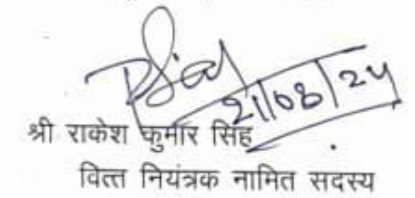 21/08/24
श्री राकेश कुमार सिंह
वित्त नियंत्रक नामित सदस्य